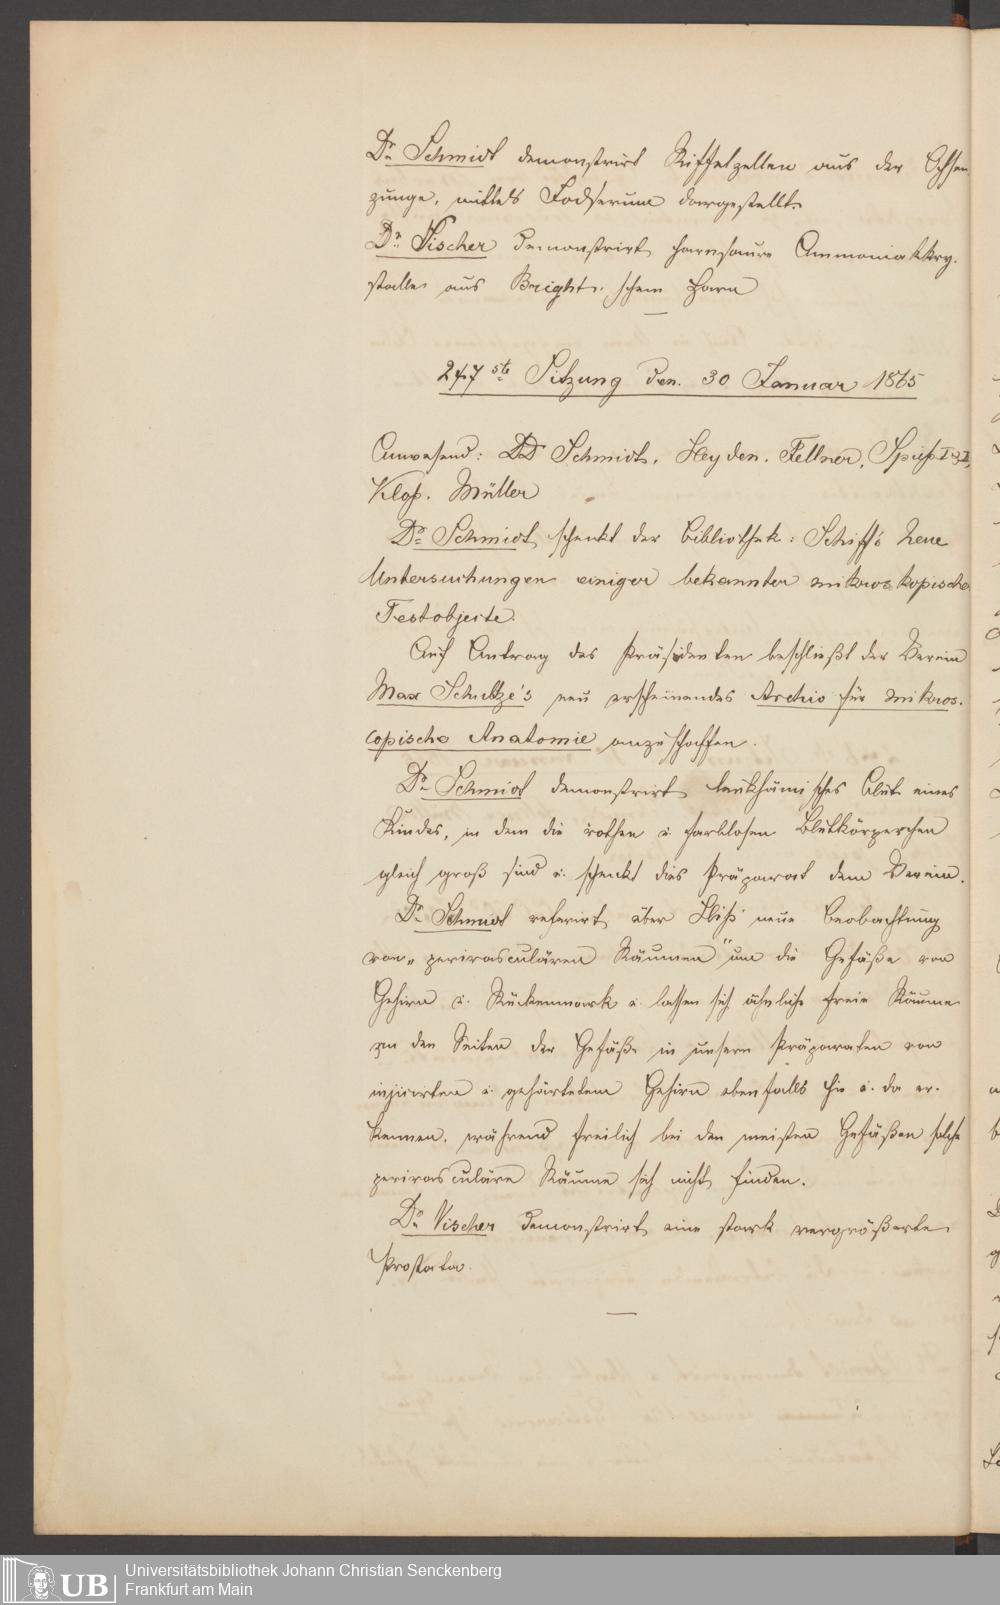 Dr. Schmidt demonstrirt Riffelzellen aus der Ochsen
zunge, mittels Jodserum dargestellt.
Dr. Vischer demonstrirt harnsaure Ammoniakkry-
stalle aus Bright'schem Harn
247ste Sitzung den 30 Januar 1865
Anwesend: DD Schmidt, Heyden, Fellner, Spieß I & II,
Kloß, Müller
Dr. Schmidt schenkt der Bibliothek: Schiff's Neue
Untersuchungen einiger bekannter mikroskopische
Testobjecte.
Auf Antrag des Präsidenten beschließt der Verein
Max Schultze's neu erscheinendes Archiv für mikros-
copische Anatomie anzuschaffen.
Dr. Schmidt demonstrirt leukhämisches Blut eines
Kindes, in dem die rothen u. farblosen Blutkörperchen
gleich groß sind u. schenkt dies Präparat dem Verein.
Dr. Schmidt referirt über His' neue Beobachtung
von „perivasculären Räumen" um die Gefäße von
Gehirn u. Rückenmark u. lassen sich ähnliche freie Räume
zu den Seiten der Gefäße in unsern Präparaten von
injicirten u. gehärtetem Gehirn ebenfalls hie u. da er-
kennen, während freilich bei den meisten Gefäßen solche
perivasculäre Räume sich nicht finden.
Dr. Vischer demonstrirt eine stark vergrößerte
Prostata.
UB
Universitätsbibliothek Johann Christian Senckenberg
Frankfurt am Main